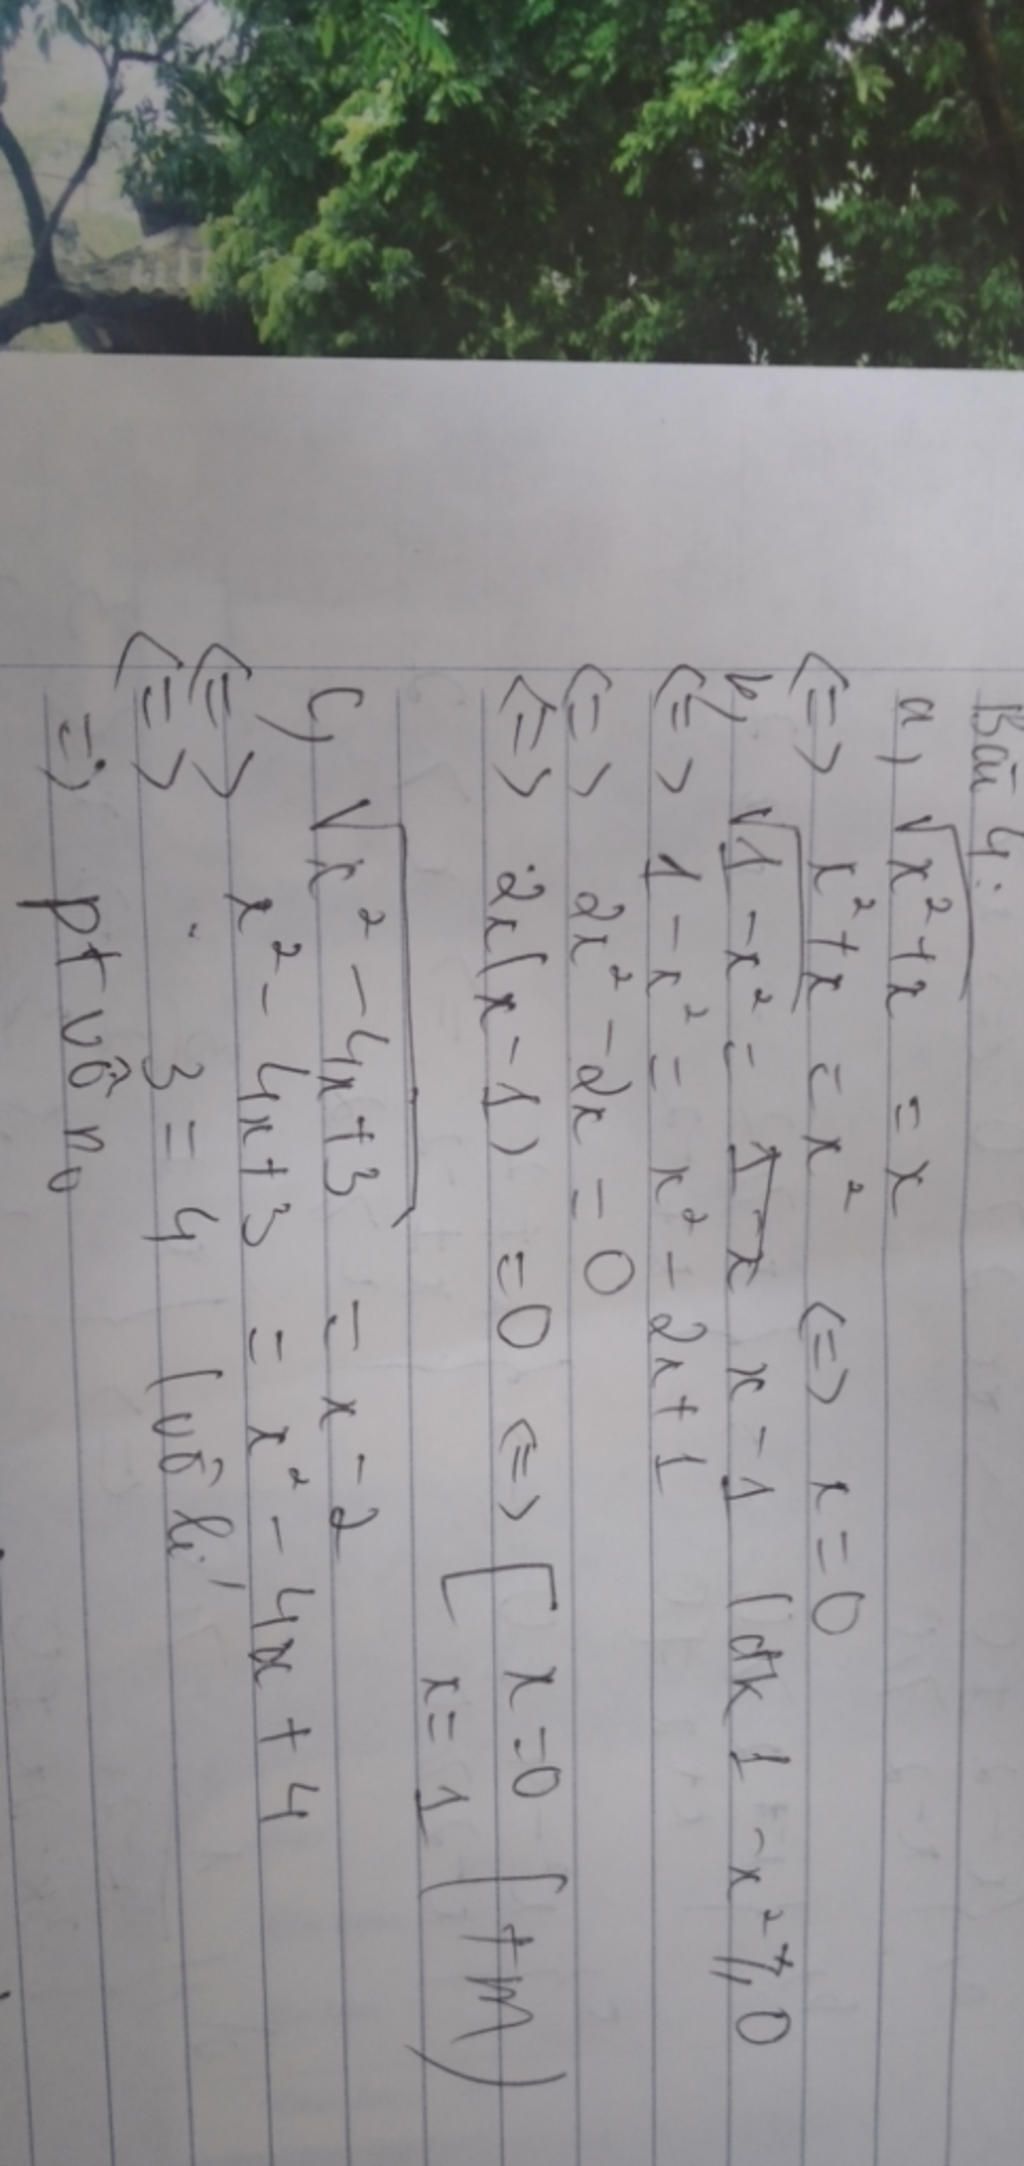 Bài 4:
a, √x²+x = x
<=> x²+x = x² <=> x=0
b, √1-x² = x-1 (đk 1-x² ≥ 0
<=> 1-x² = x²-2x+1
<=> 2x²-2x = 0
<=> 2x(x-1) =0 <=> [x=0
x=1 (tm)
c, √x²-4x+3 = x-2
<=> x²-4x+3 = x²-4x+4
<=> 3=4 (vô lí
=> pt vô n₀